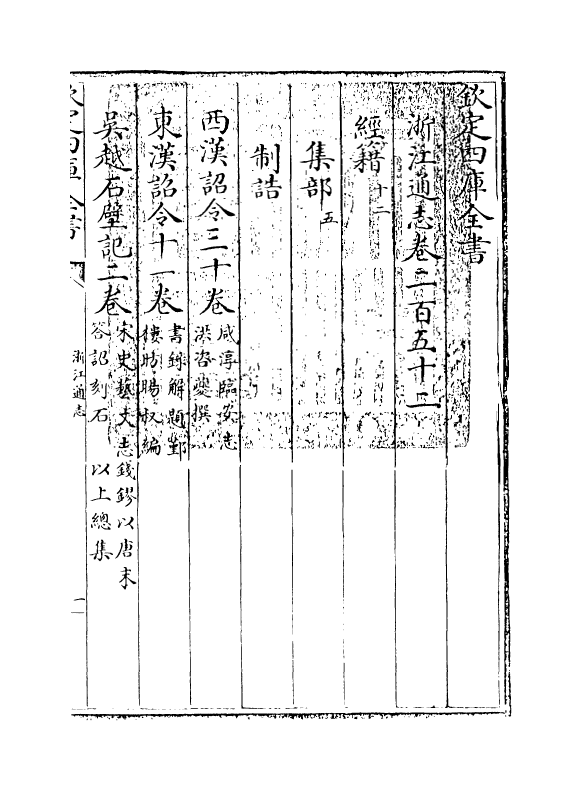 欽定四庫全書
浙江通志卷二百五十二
經籍十二
集部五
制誥
西漢詔令三十卷咸淳臨安志
洪咨夔撰
東漢詔令十一卷書錄解題鄞
樓昉暘叔編
吳越石壁記二卷宋史藝文志錢鏐以唐末
答詔刻石 以上總集
欽定四庫全書
浙江通志
一